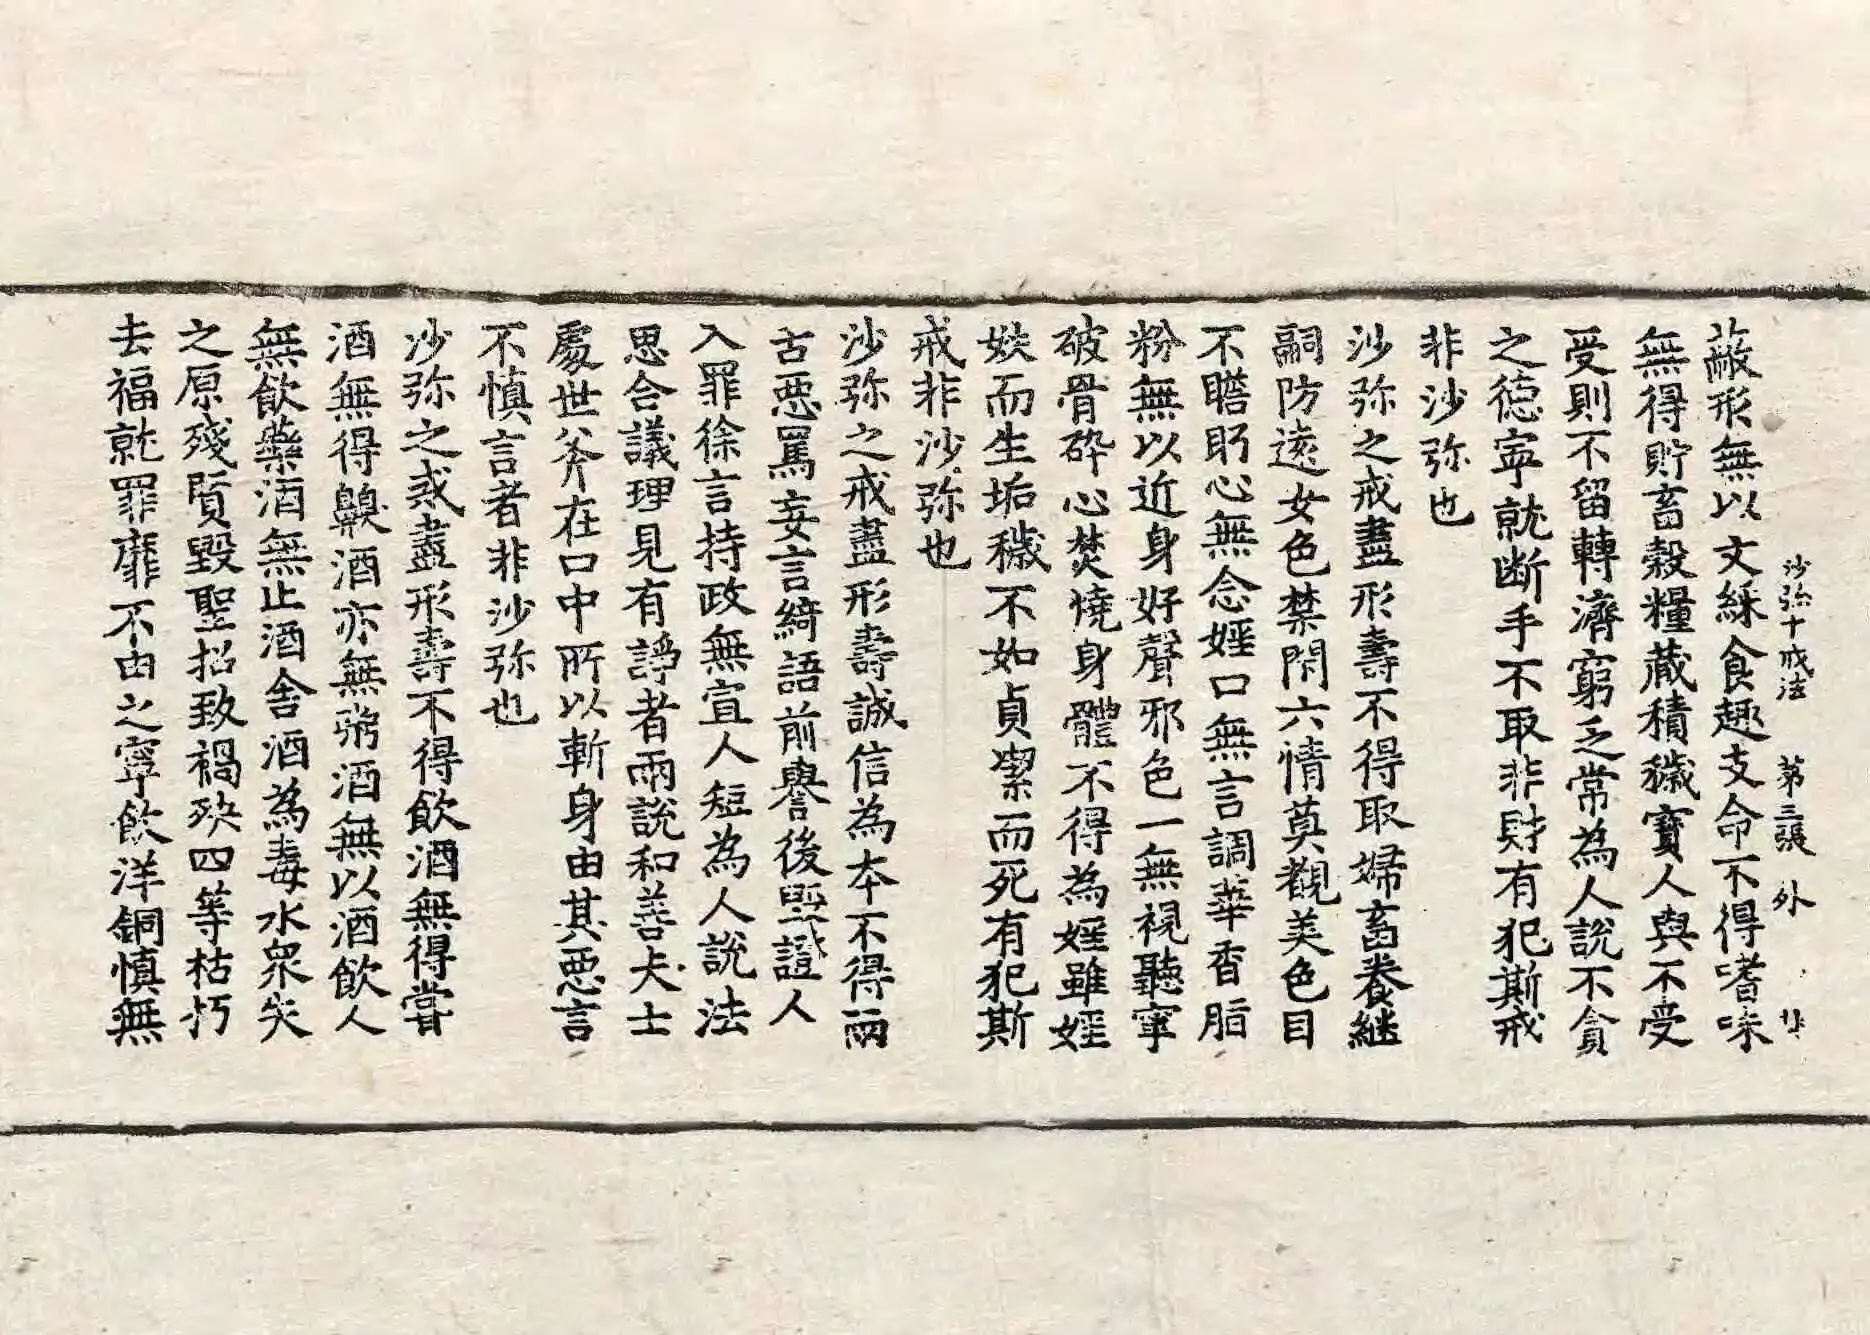 沙弥十戒法　第三張　外
蔽形無以文綵食趣支命不得嗜味
無得貯畜穀糧藏積穢寶人與不受
受則不留轉濟窮乏常為人說不貪
之德寧就斷手不取非財有犯斯戒
非沙弥也
沙弥之戒盡形壽不得取婦畜養継
嗣防遠女色禁閇六情莫覩美色目
不瞻眄心無念婬口無言調華香脂
粉無以近身好聲邪色一無視聽寧
破骨碎心焚燒身體不得為婬雖婬
妷而生垢穢不如貞潔而死有犯斯
戒非沙弥也
沙弥之戒盡形壽誠信為本不得兩
古惡罵妄言綺語前譽後毀證人
入罪徐言持政無宣人短為人說法
思合議理見有諍者兩說和善夫士
處世斧在口中所以斬身由其惡言
不慎言者非沙弥也
沙弥之戒盡形壽不得飲酒無得甞
酒無得齅酒亦無粥酒無以酒飲人
無飲藥酒無止酒舍酒為毒水眾失
之原殘質毀聖招致禍殃四等枯朽
去福就罪靡不由之寧飲洋銅慎無